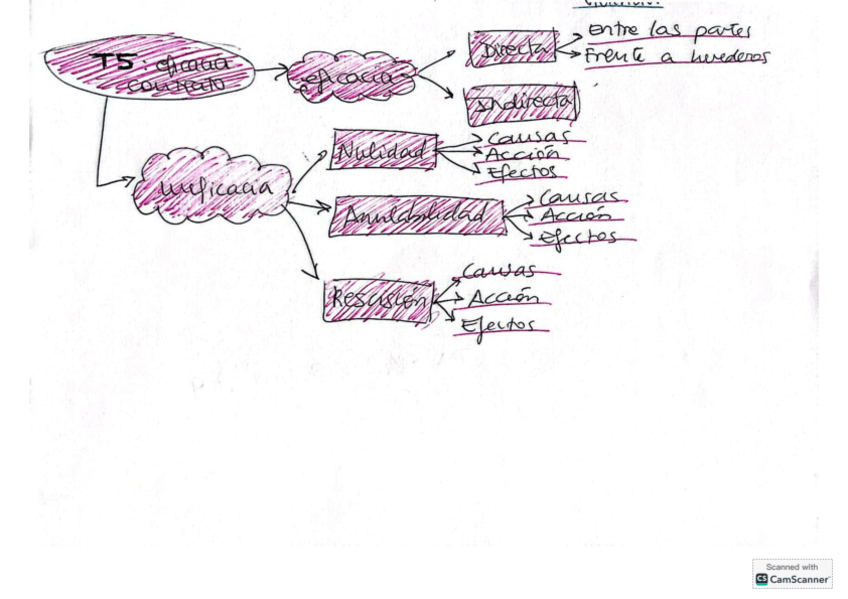 Entre las partes
T5: eficacia
contrato
eficacia
Directa
Frente a herederos
Indirecta
Nulidad
Causas
Acción
Efectos
inificacia
Anulabilidad
Causas
Acción
Efectos
Rescisión
Causas
Acción
Efectos
Scanned with
CS CamScanner